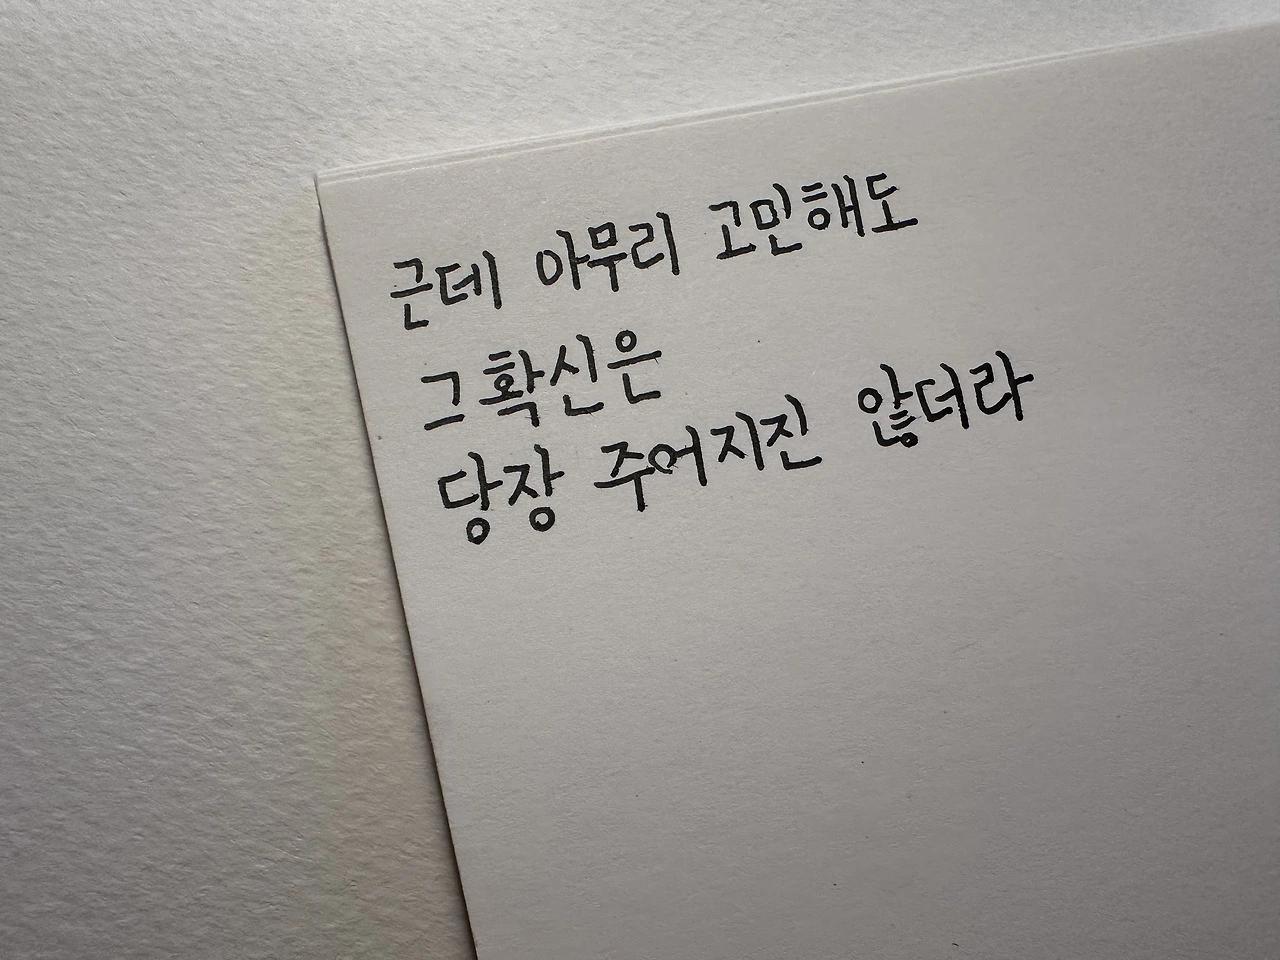 근데 아무리 고민해도
그 확신은
당장 주어지진 않더라